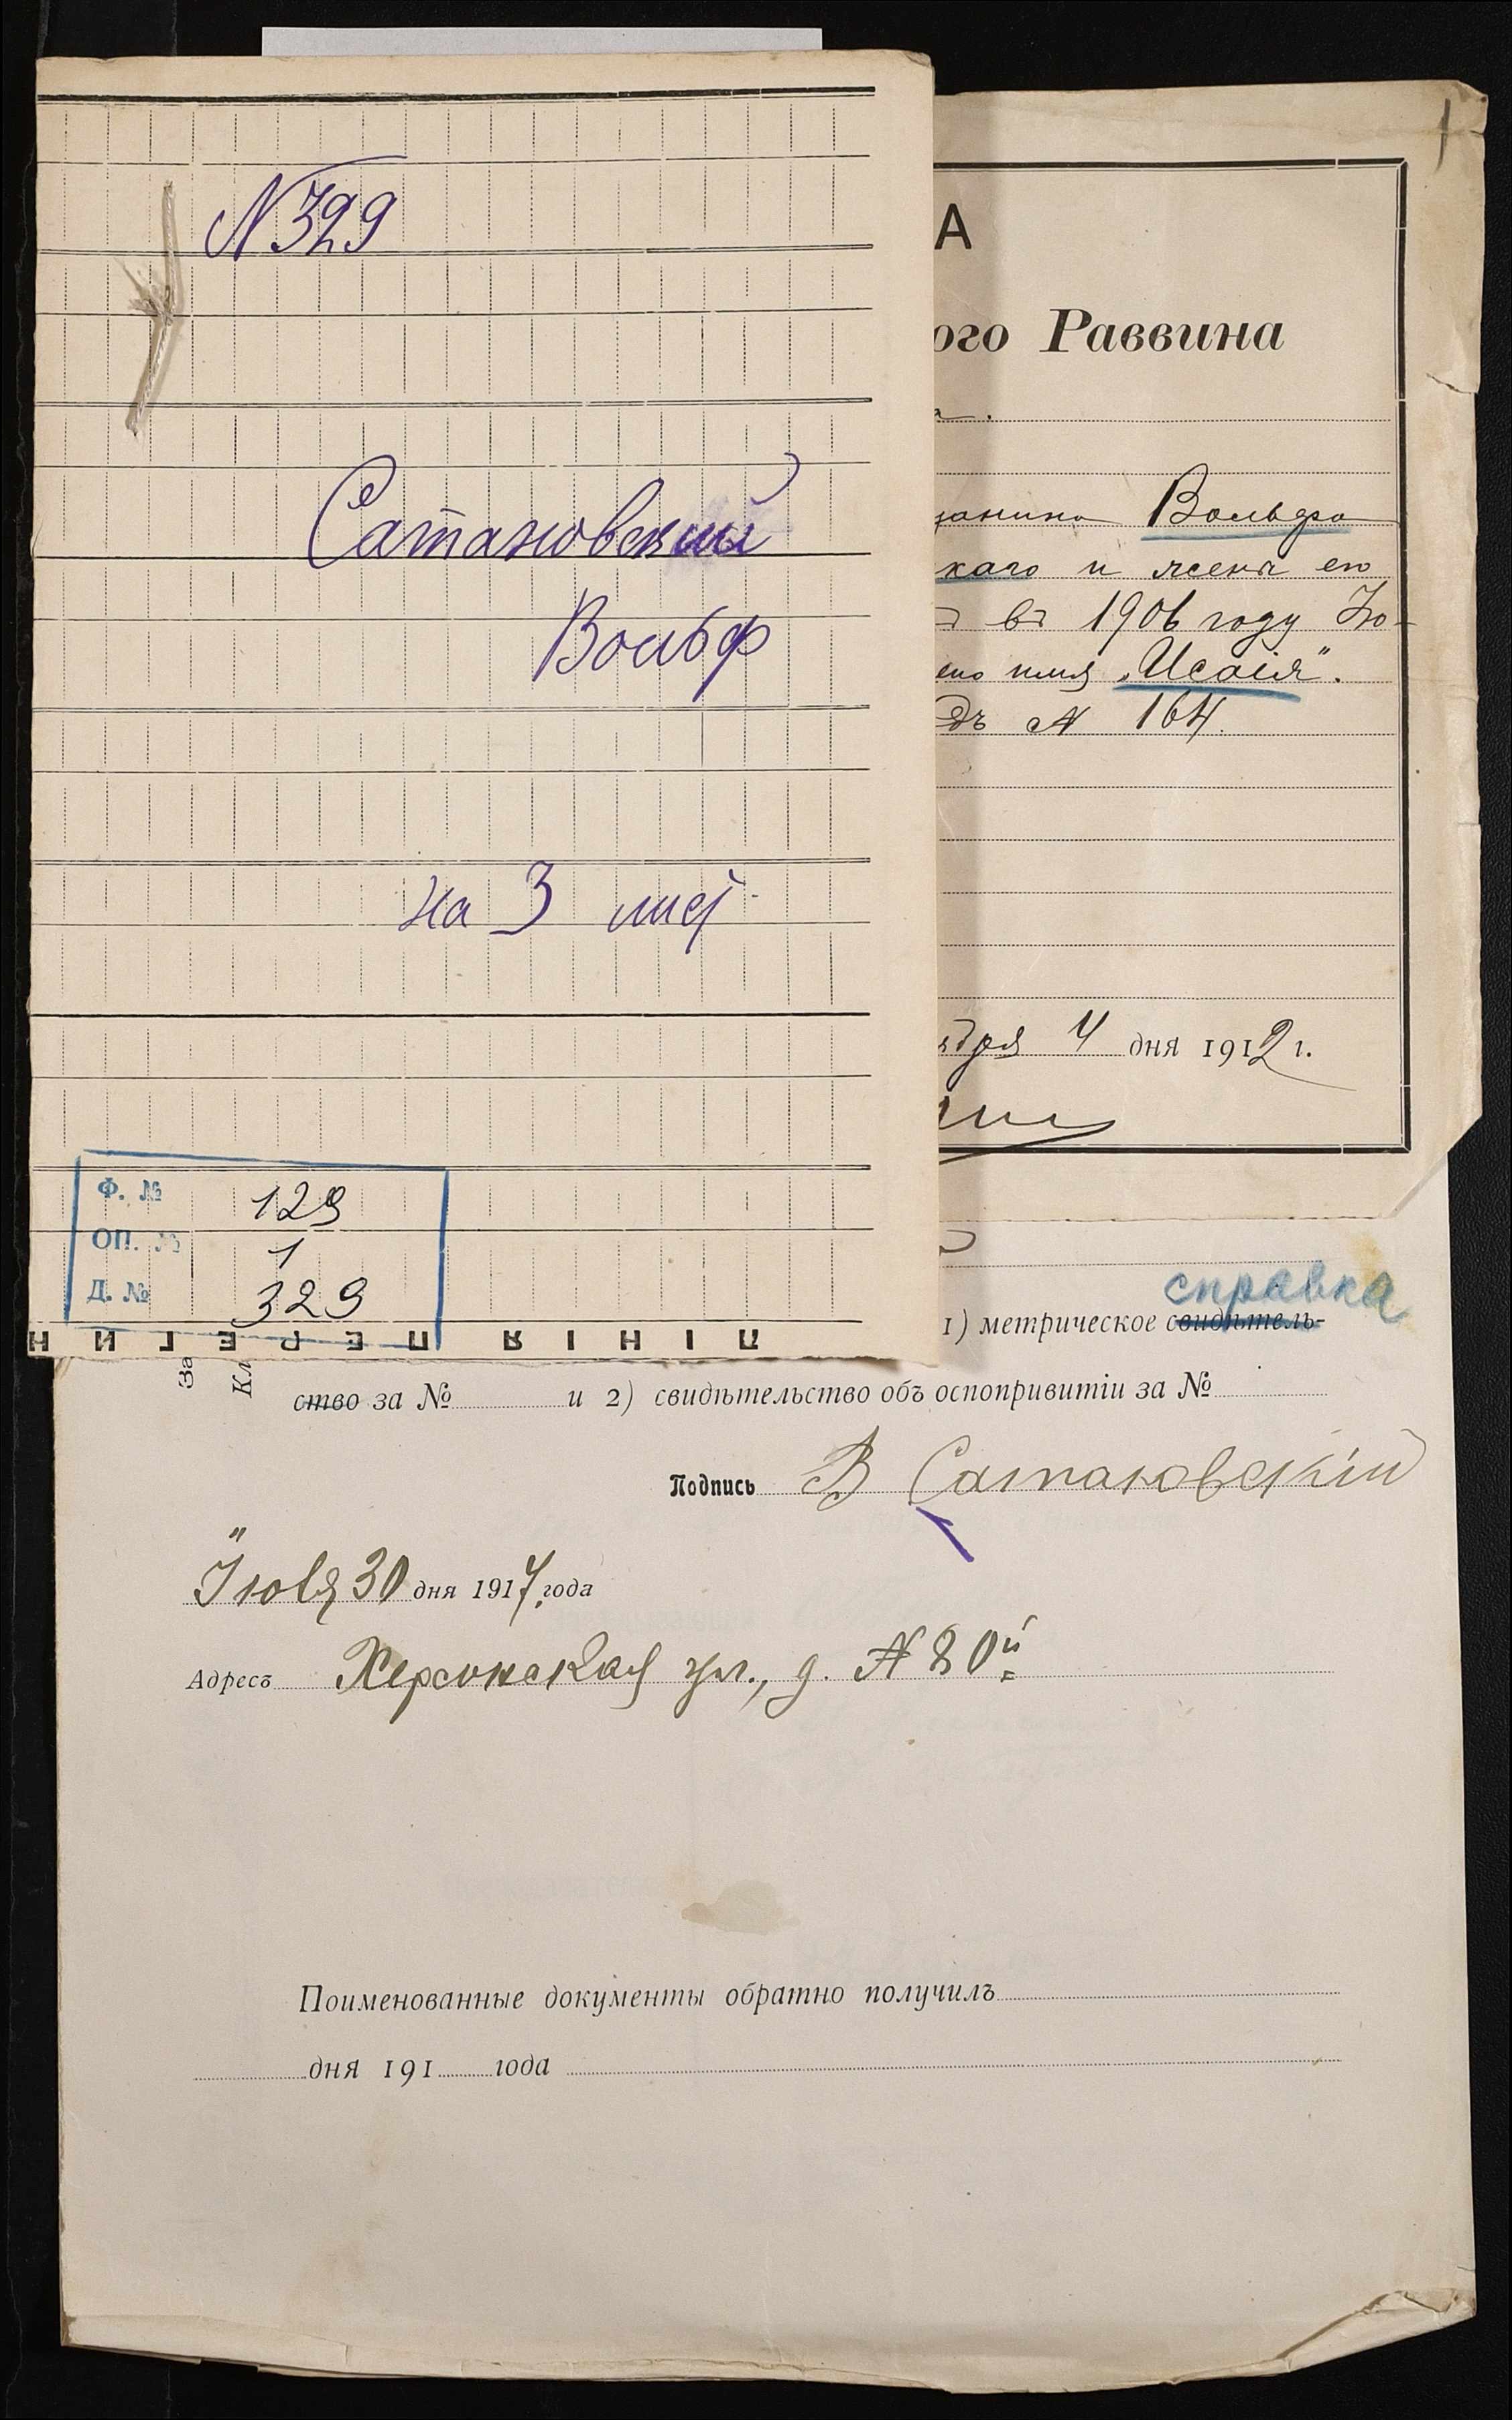 N 329
Сатановский
Вольф
на 3 лист.
Ф. № 129
ОП. № 1
Д. № 329
ЛІНІЯ ПЕРЕГИН
1
А
ого Раввина
Вольфа
каго и жены его
въ 1906 году Ію-
ено имя „Исаія".
N 164.
ября 4 дня 1912 г.
справка
1) метрическое свидѣтель-
За
Кл
ство за № и 2) свидѣтельство объ оспопривитіи за №
Подпись В Сатановскій
Іюля 30 дня 1914 года
Адресъ Херсонская ул., д. N 80й
Поименованные документы обратно получилъ
дня 191 года